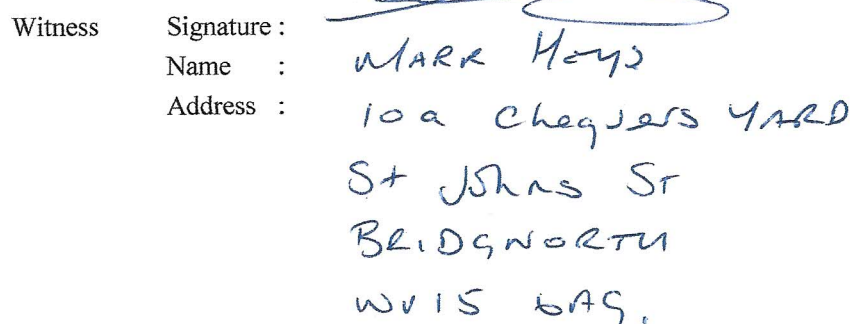 Witness Signature :
Name : MARK HEYS
Address : 10a Chequers YARD
St Johns ST
BRIDGNORTH
WV15 6AG.